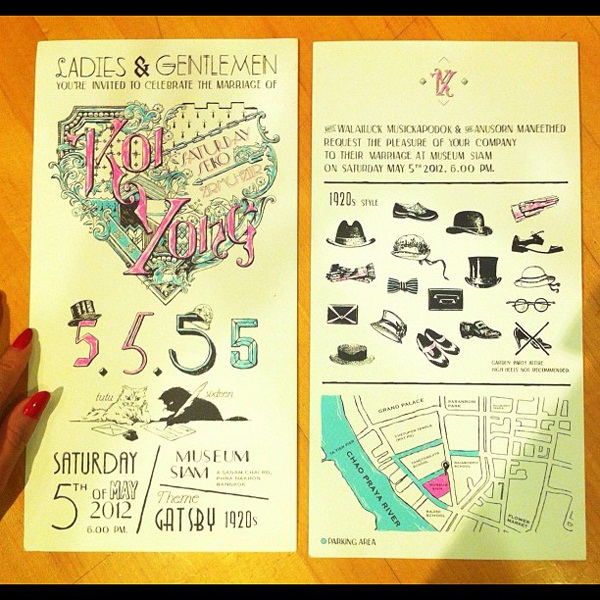 LADIES & GENTLEMEN
YOU'RE INVITED TO CELEBRATE THE MARRIAGE OF
Koi
SATURDAY
Yong
5.5.55
tutu
sixteen
SATURDAY
5TH OF MAY
2012
6.00 PM.
MUSEUM
SIAM
BANGKOK
Theme
GATSBY 1920s
WALAILUCK MUSICKAPODOK & ANUSORN MANEETHED
REQUEST THE PLEASURE OF YOUR COMPANY
TO THEIR MARRIAGE AT MUSEUM SIAM
ON SATURDAY MAY 5TH 2012. 6.00 PM.
1920s STYLE
GARDEN PARTY ATTIRE
HIGH HEELS NOT RECOMMENDED
GRAND PALACE
SARANROM
PARK
CHAO PRAYA RIVER
MUSEUM
SIAM
SCHOOL
FLOWER
MARKET
PARKING AREA